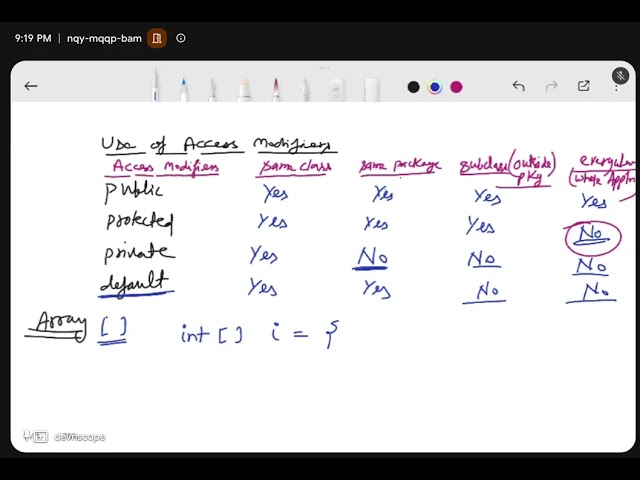 9:19 PM | nqy-mqqp-bam
Use of Access Modifiers
Access Modifiers same class same package subclass (outside pkg) everywhere (whole
public Yes Yes Yes Yes
protected Yes Yes Yes No
private Yes No No No
default Yes Yes No No
Array [ ] int [ ] i = {
devhscope